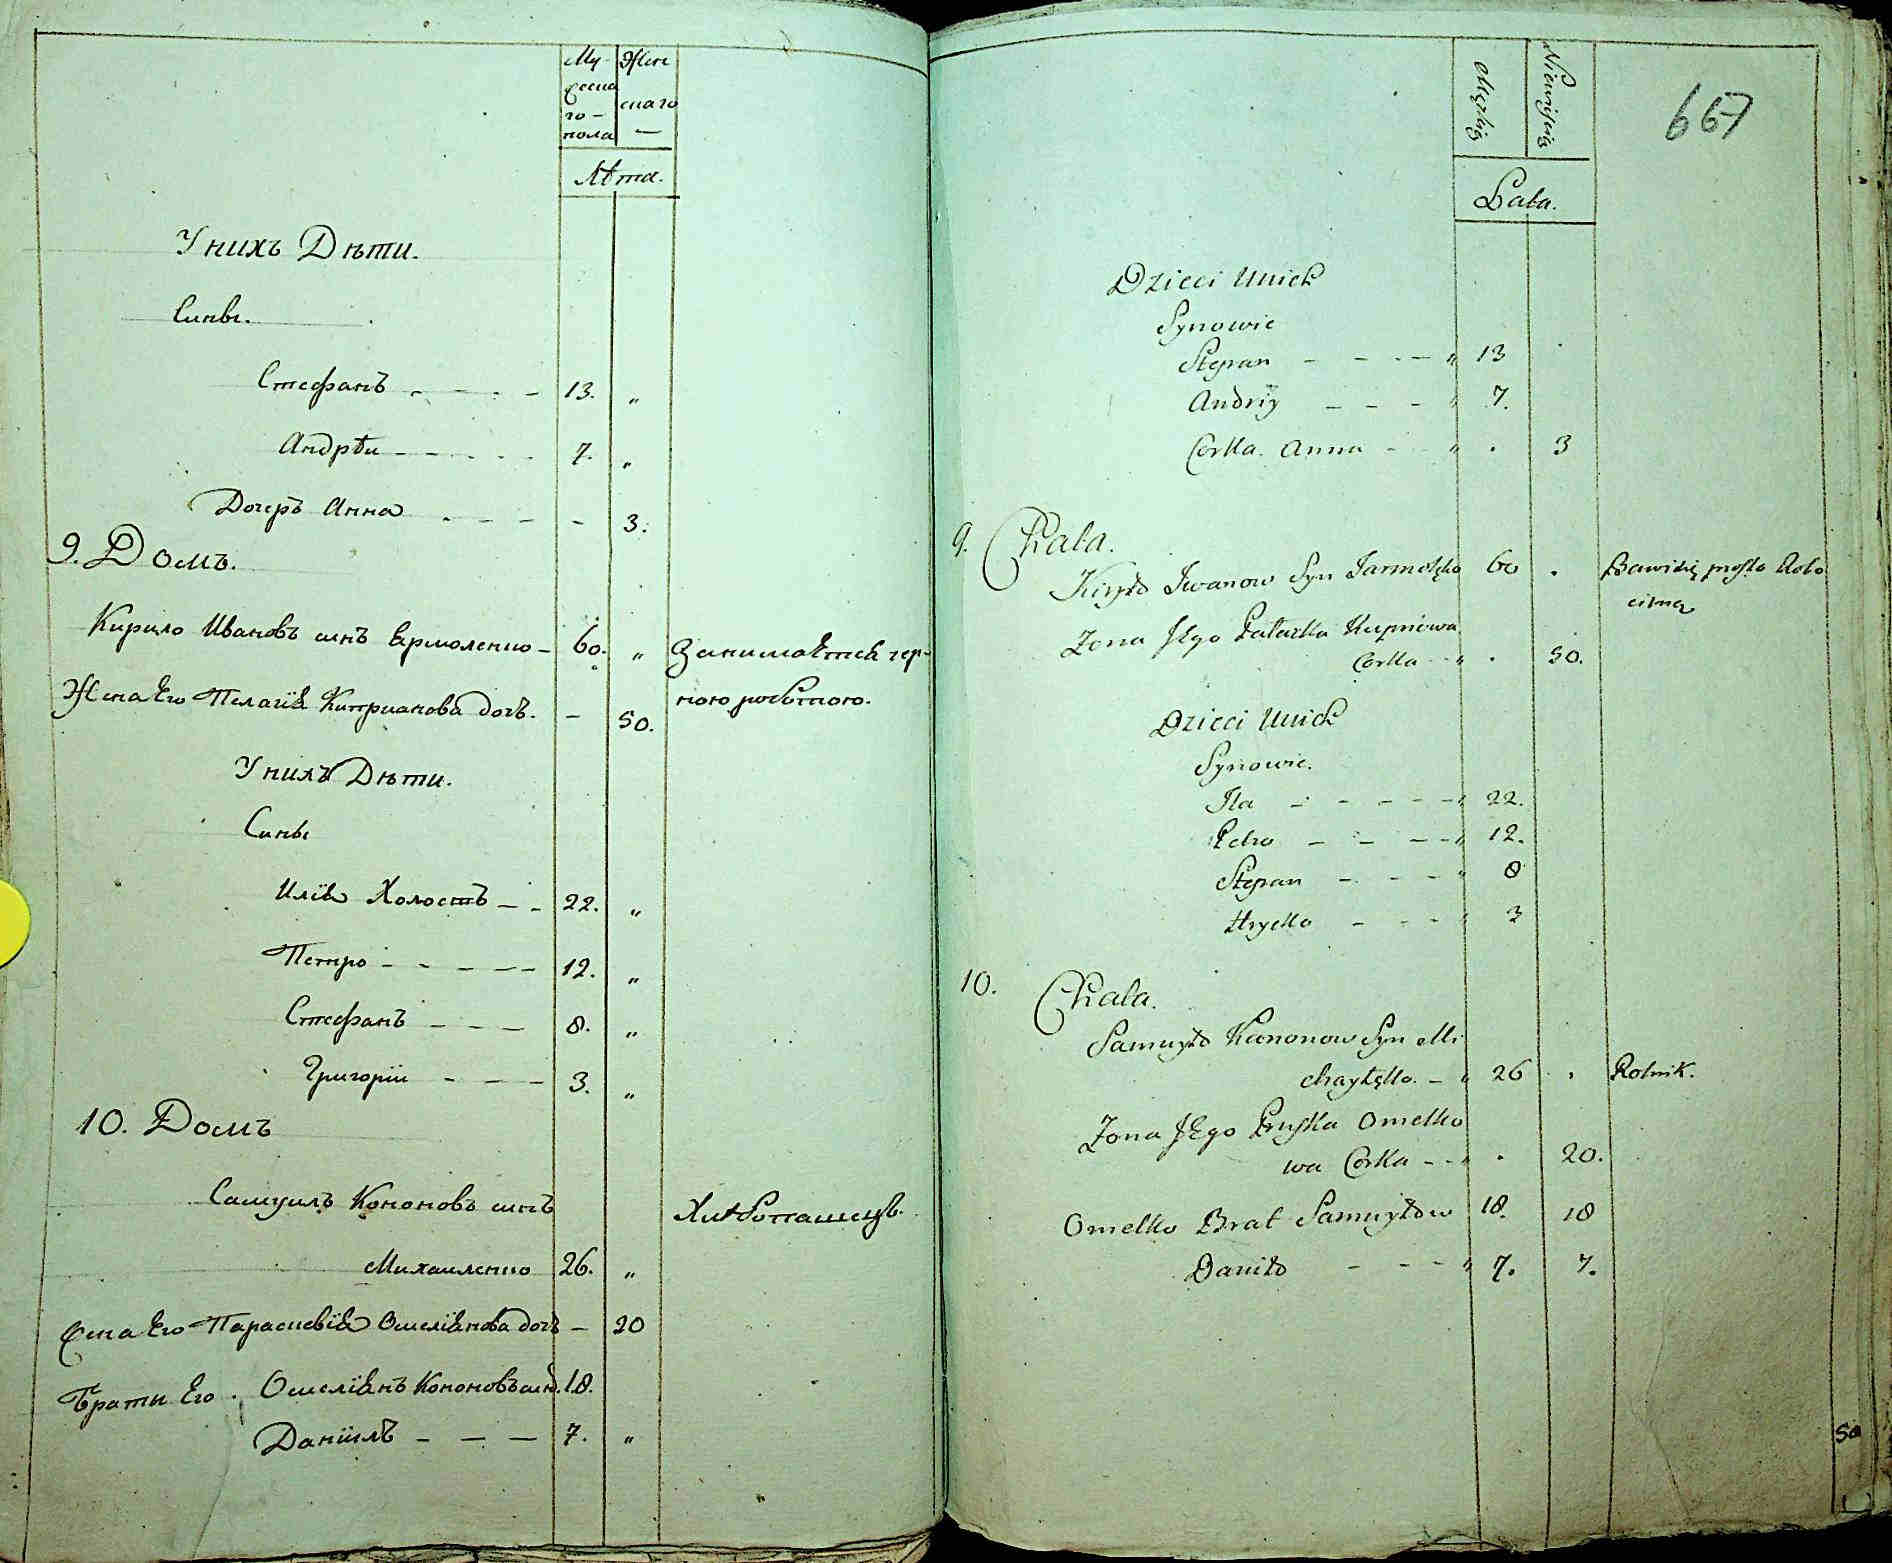 Му-
жеска
го-
пола
Жен
скаго
—
Лѣта.
У нихъ Дѣти.
Сины.
Стефанъ - - - - 13. „
Андрѣи - - - - - 7. „
Дочеръ Анна - - - - 3.
9. Домъ.
Кирило Ивановъ синъ Ермоленко - 60. „ Занимаѣтся чер-
ною роботою.
Жена Его Пелагія Киприанова дочъ. - 50.
У нихъ Дѣти.
Сины
Илія Холостъ - - 22. „
Петро - - - - - 12. „
Стефанъ - - - 8. „
Григоріи - - - 3. „
10. Домъ
Самуилъ Кононовъ синъ Хлѣбопашецъ.
Михаиленко 26. „
Жена Его Параскевія Омеліянова дочъ - 20
Брати Его. Омеліянъ Кононовъ синъ. 18.
Даніилъ - - - 7. „
667
Męzkię
Niewiſcię
Łata.
Dzieci Unich
Synowie
Stepan - - - - „ 13
Andriy - - - „ 7.
Corka. Anna - - „ . 3
9. Chata.
Kiryło Iwanow Syn Jarmolęko 60 . Bawi się prosto Robo
cizną
Zona JEgo Pałazka Kupriowa
Corka - - „ . 50.
Dzieci Unich
Synowie.
Ila - - - - - „ 22.
Petro - - - - „ 12.
Stepan - - - „ 8
Hrycko - - - „ 3
10. Chata.
Samuyło Kononow Syn Mi
chayłęko. - „ 26 . Rolnik.
Zona JEgo Pruſka Omelko
wa Corka - - „ . 20.
Omelko Brat Samuyłow 18. 18
Daniło - - - „ 7. 7.
50